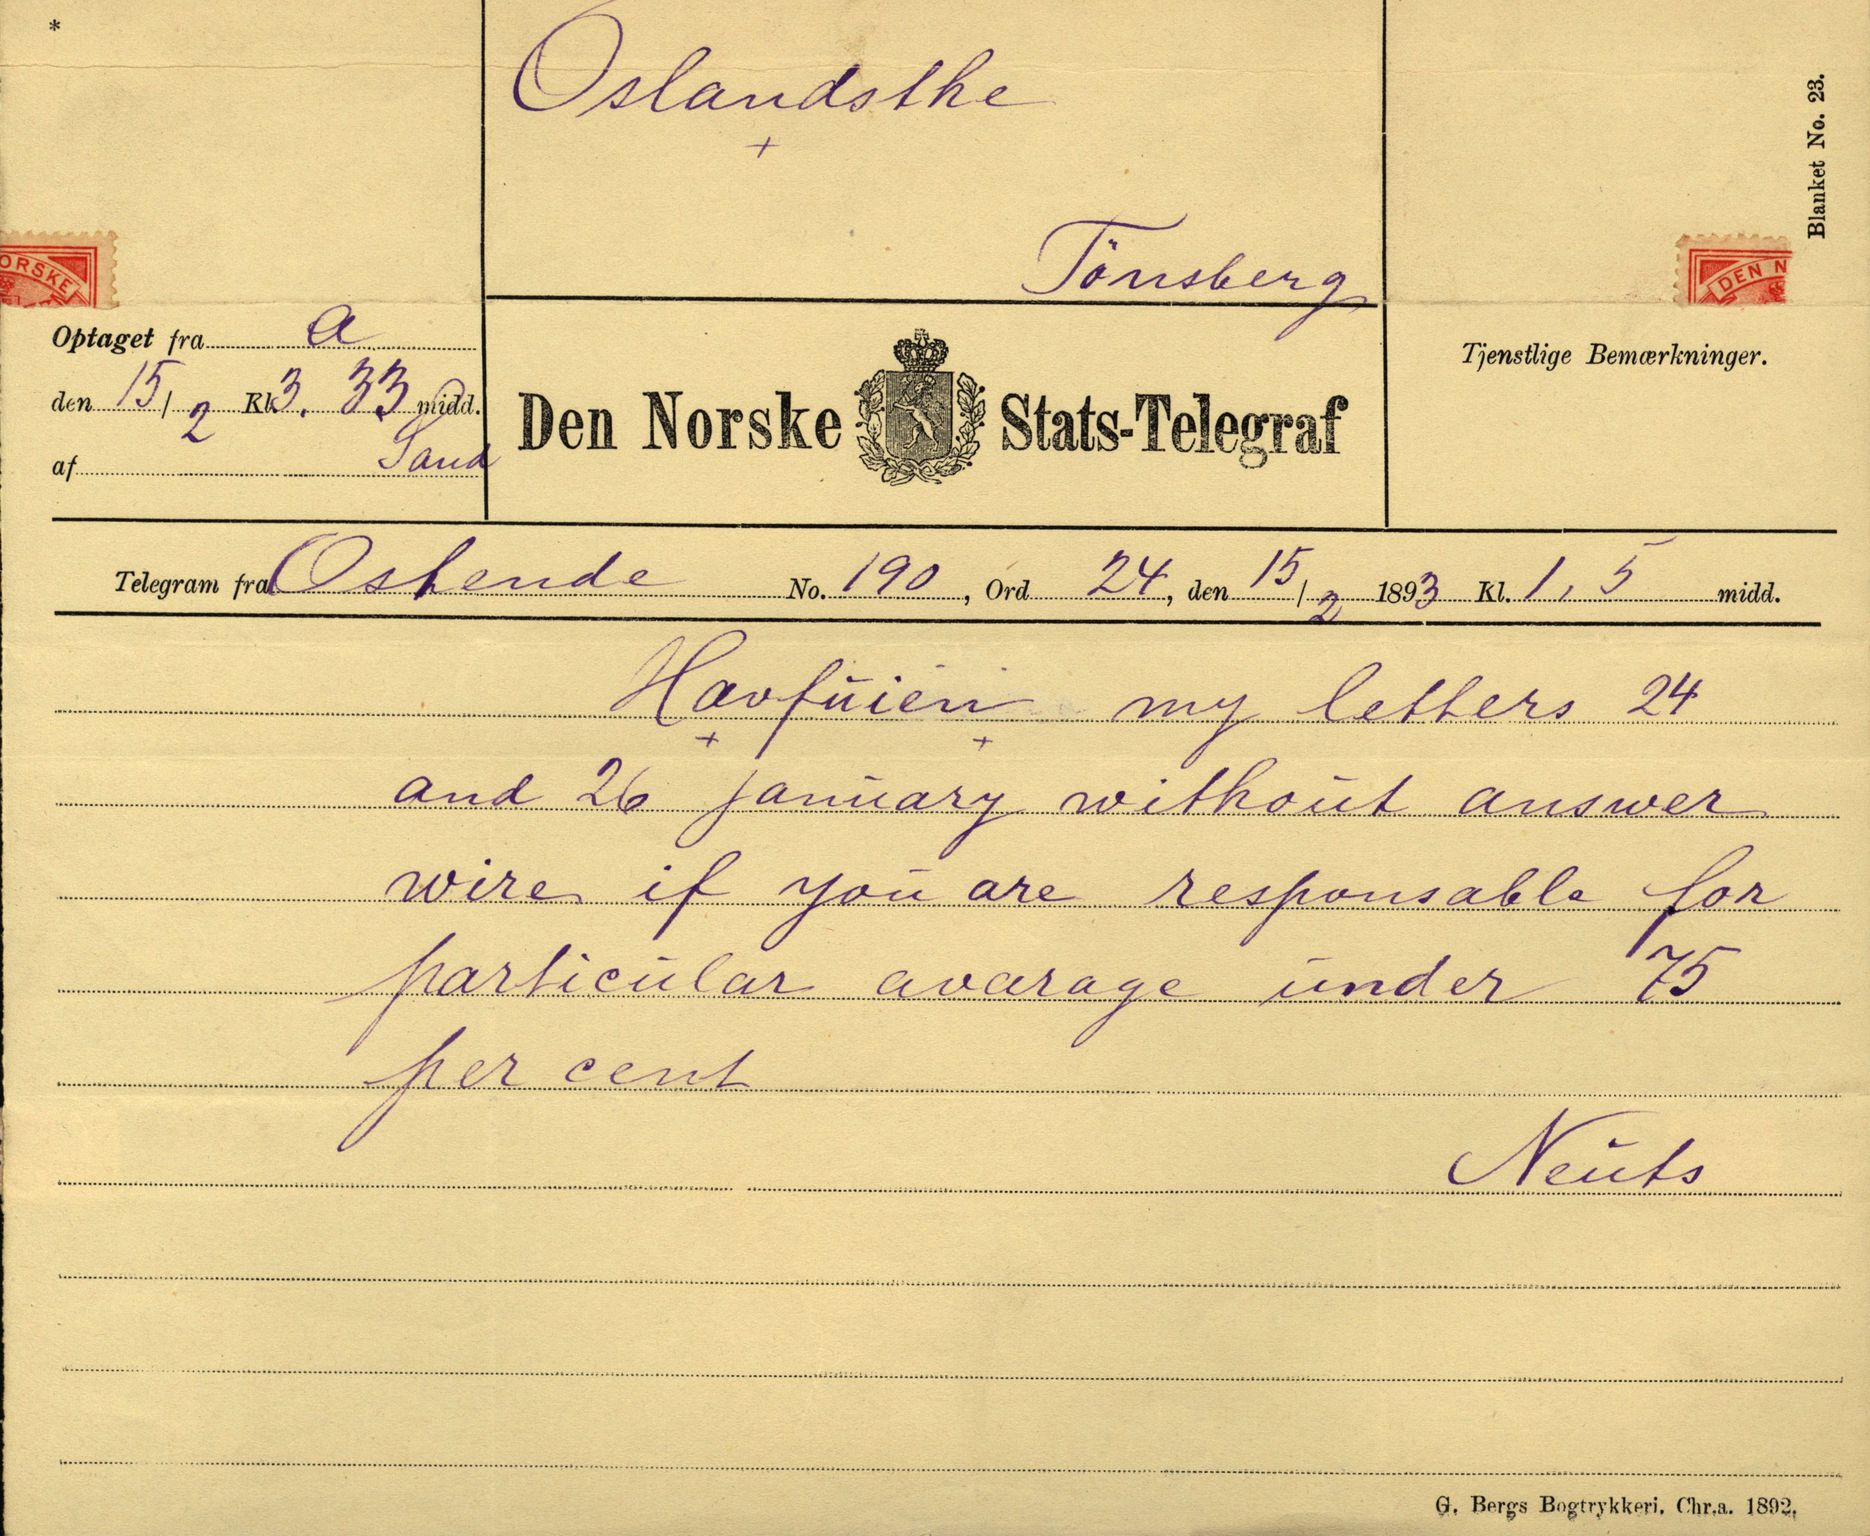 *
Oslandsthe
Tönsberg
Blanket No. 23.
ORSKE
DEN N
Optaget fra a
den 15/2 Kl. 3. 33 midd.
af Sand
Den Norske Stats-Telegraf
Tjenstlige Bemærkninger.
Telegram fra Ostende No. 190, Ord 24, den 15/2 1893 Kl. 1, 5 midd.
my letters 24
and 26 january without answer
wire if you are responsable for
particular avarage under 75
per cent
Neuts
G. Bergs Bogtrykkeri. Chr.a. 1892.